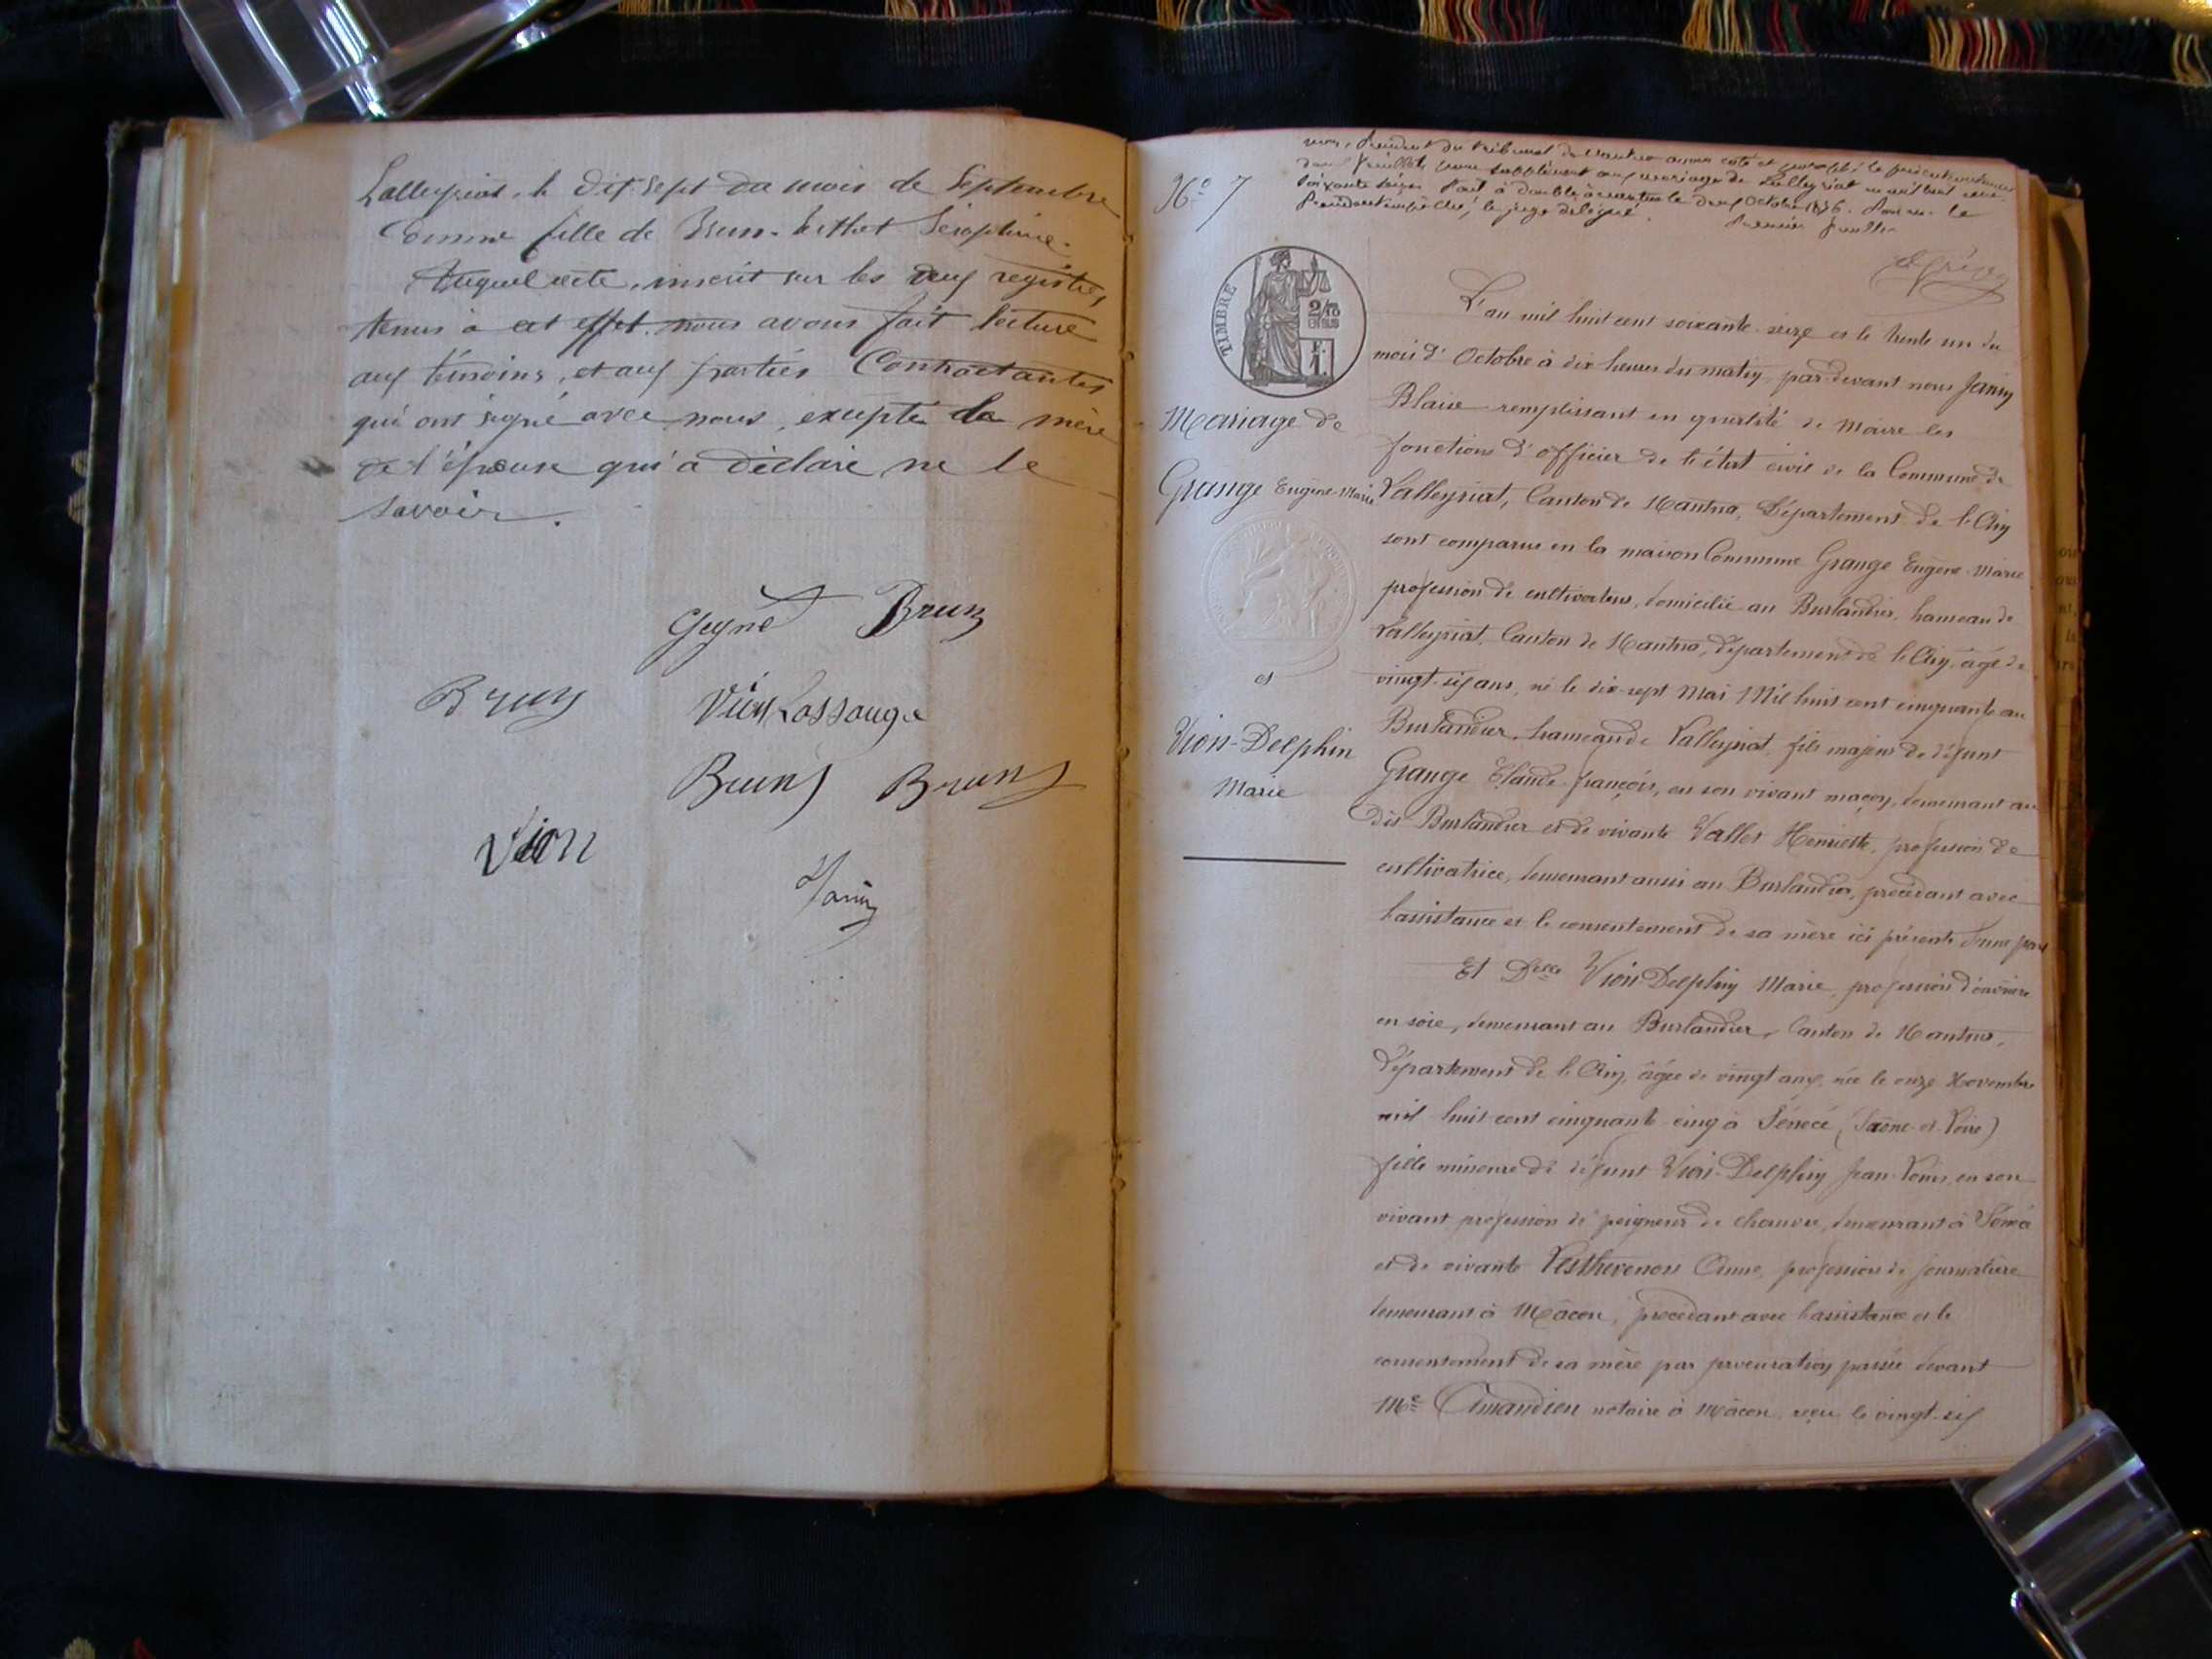 Lalleyriat, le dix-sept du mois de Septembre
Comme fille de Brun-berthet Séraphine.
Auquel acte, inscrit sur les deux registres
tenus à cet effet, nous avons fait lecture
aux témoins, et aux parties Contractantes
qui ont signé avec nous, excepté la mère
de l'épouse qui a déclaré ne le
savoir.
Brun
Brun
Vion Lassauge
Brun Brun
Vion
Janin
Président du tribunal de Nantua avons coté et le présent
deux feuillets pour supplément aux mariages de Lalleyriat en mil huit cent
Soixante seize. Fait à double à Nantua le deux Octobre 1876. Pour le
Président empêché, le juge délégué.
Premier feuillet
No 7
TIMBRE
2/10
EN SUS
F.
1.
Mariage de
Grange Eugène-Marie
et
Vion-Delphin
Marie
L'an mil huit cent soixante-seize et le trente un du
mois d'Octobre à dix heures du matin, par-devant nous Janin
Blaise remplissant en qualité de Maire les
fonctions d'officier de l'état civil de la Commune de
Lalleyriat, Canton de Nantua, Département de l'Ain
sont comparus en la maison Commune Grange Eugène-Marie
profession de cultivateur, domicilié au Burlandier, hameau de
Lalleyriat, Canton de Nantua, département de l'Ain, âgé de
vingt-six ans, né le dix-sept Mai Mil huit cent cinquante au
Burlandier, hameau de Lalleyriat, fils majeur de défunt
Grange Claude-françois, en son vivant maçon, demeurant au
dit Burlandier et de vivante Vallet Henriette, profession de
cultivatrice, demeurant aussi au Burlandier, procédant avec
l'assistance et le consentement de sa mère ici présente d'une part
Et Delle Vion-Delphin Marie, profession d'ouvrière
en soie, demeurant au Burlandier, Canton de Nantua,
Département de l'Ain, âgée de vingt ans, née le onze Novembre
mil huit cent cinquante-cinq à Sénecé, (Saône-et-Loire)
fille mineure de défunt Vion-Delphin Jean-Louis, en son
vivant profession de peigneur de chanvre, demeurant à Sénecé
et de vivante Lesthevenon Anne, profession de journalière
demeurant à Mâcon, procédant avec l'assistance et le
consentement de sa mère par procuration passée devant
Me Amandieu notaire à Mâcon, reçu le vingt-six